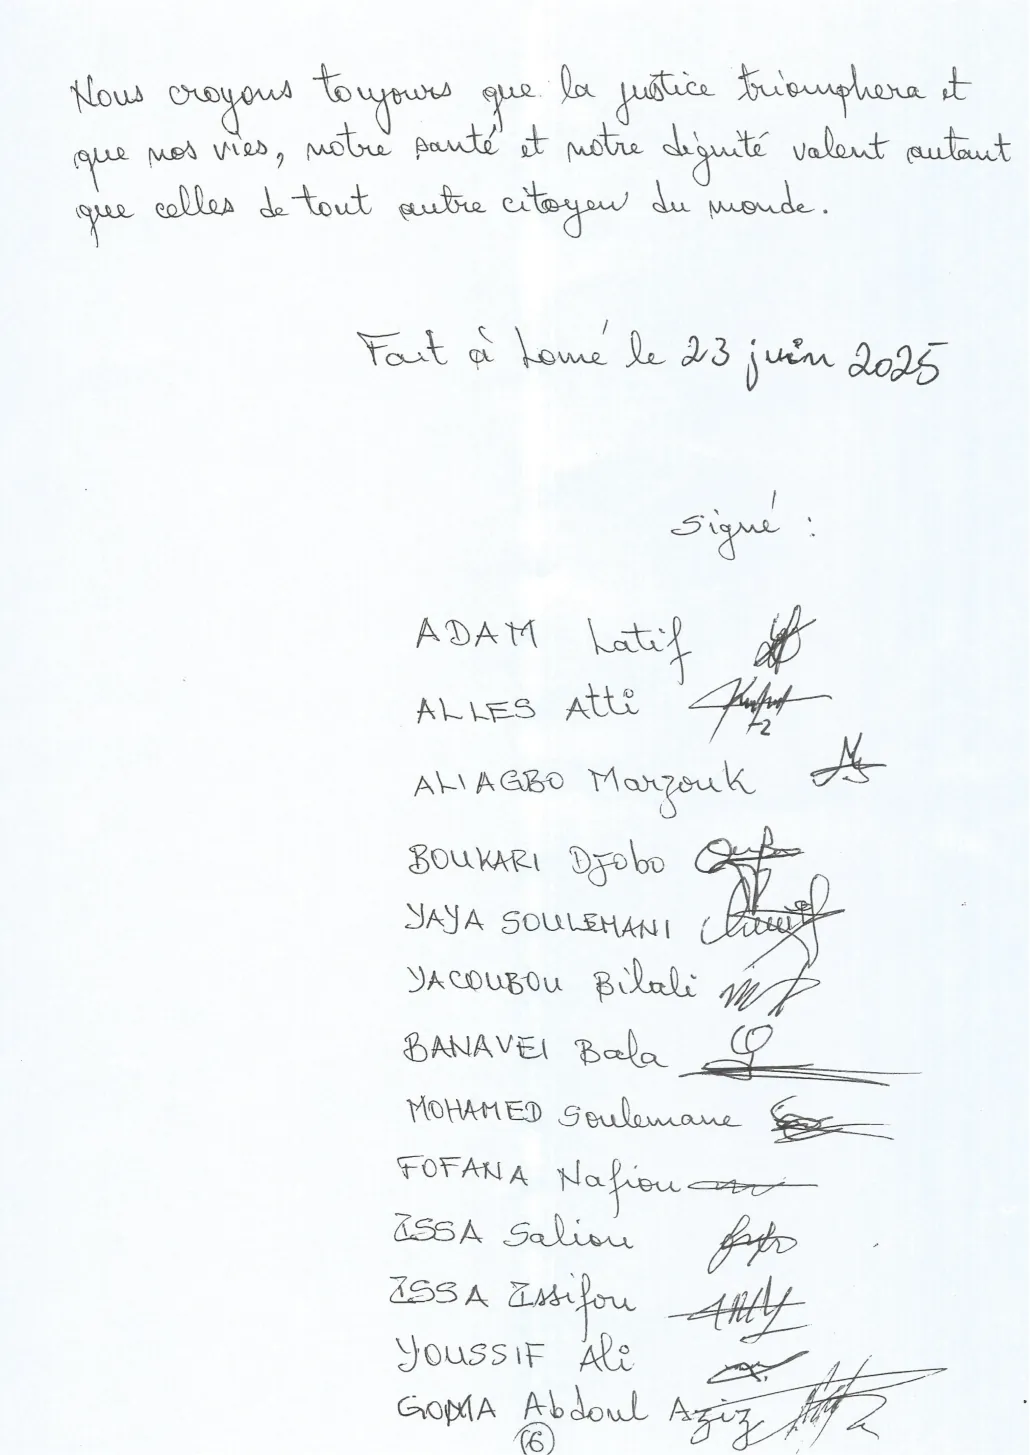 Nous croyons toujours que la justice triomphera et
que nos vies, notre santé et notre dignité valent autant
que celles de tout autre citoyen du monde.
Fait à Lomé le 23 juin 2025
Signé :
ADAM Latif
ALLES Atti
ALIAGBO Marzouk
BOUKARI Djobo
YAYA SOULEMANI
YACOUBOU Bilali
BANAVEI Bala
MOHAMED Soulemane
FOFANA Nafiou
ISSA Saliou
ISSA Issifou
YOUSSIF Ali
GOMA Abdoul Aziz
6